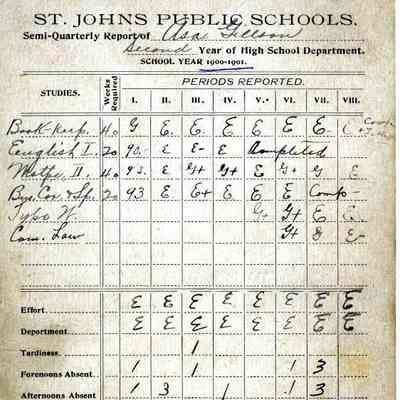 ST. JOHNS PUBLIC SCHOOLS.
Semi-Quarterly Report of Asa Gillson
Second Year of High School Department.
SCHOOL YEAR 1900-1901.
STUDIES. Weeks Required PERIODS REPORTED.
I. II. III. IV. V. VI. VII. VIII.
Book-keep. 40 G E. E. E E E E- Com.
English I. 20 90- E E- E Completed
40 93. E G+ G+ E G+ G E
Bus. Cor. & Sp. 20 93 E E+ E E E Comp
Type W. G+ G+ E E
Com. Law G+ E-
Effort E E E E E E E E
Department E E E E E E E E
Tardiness. 1
Forenoons Absent 1 1 1 3
Afternoons Absent 1 3 1 1 3